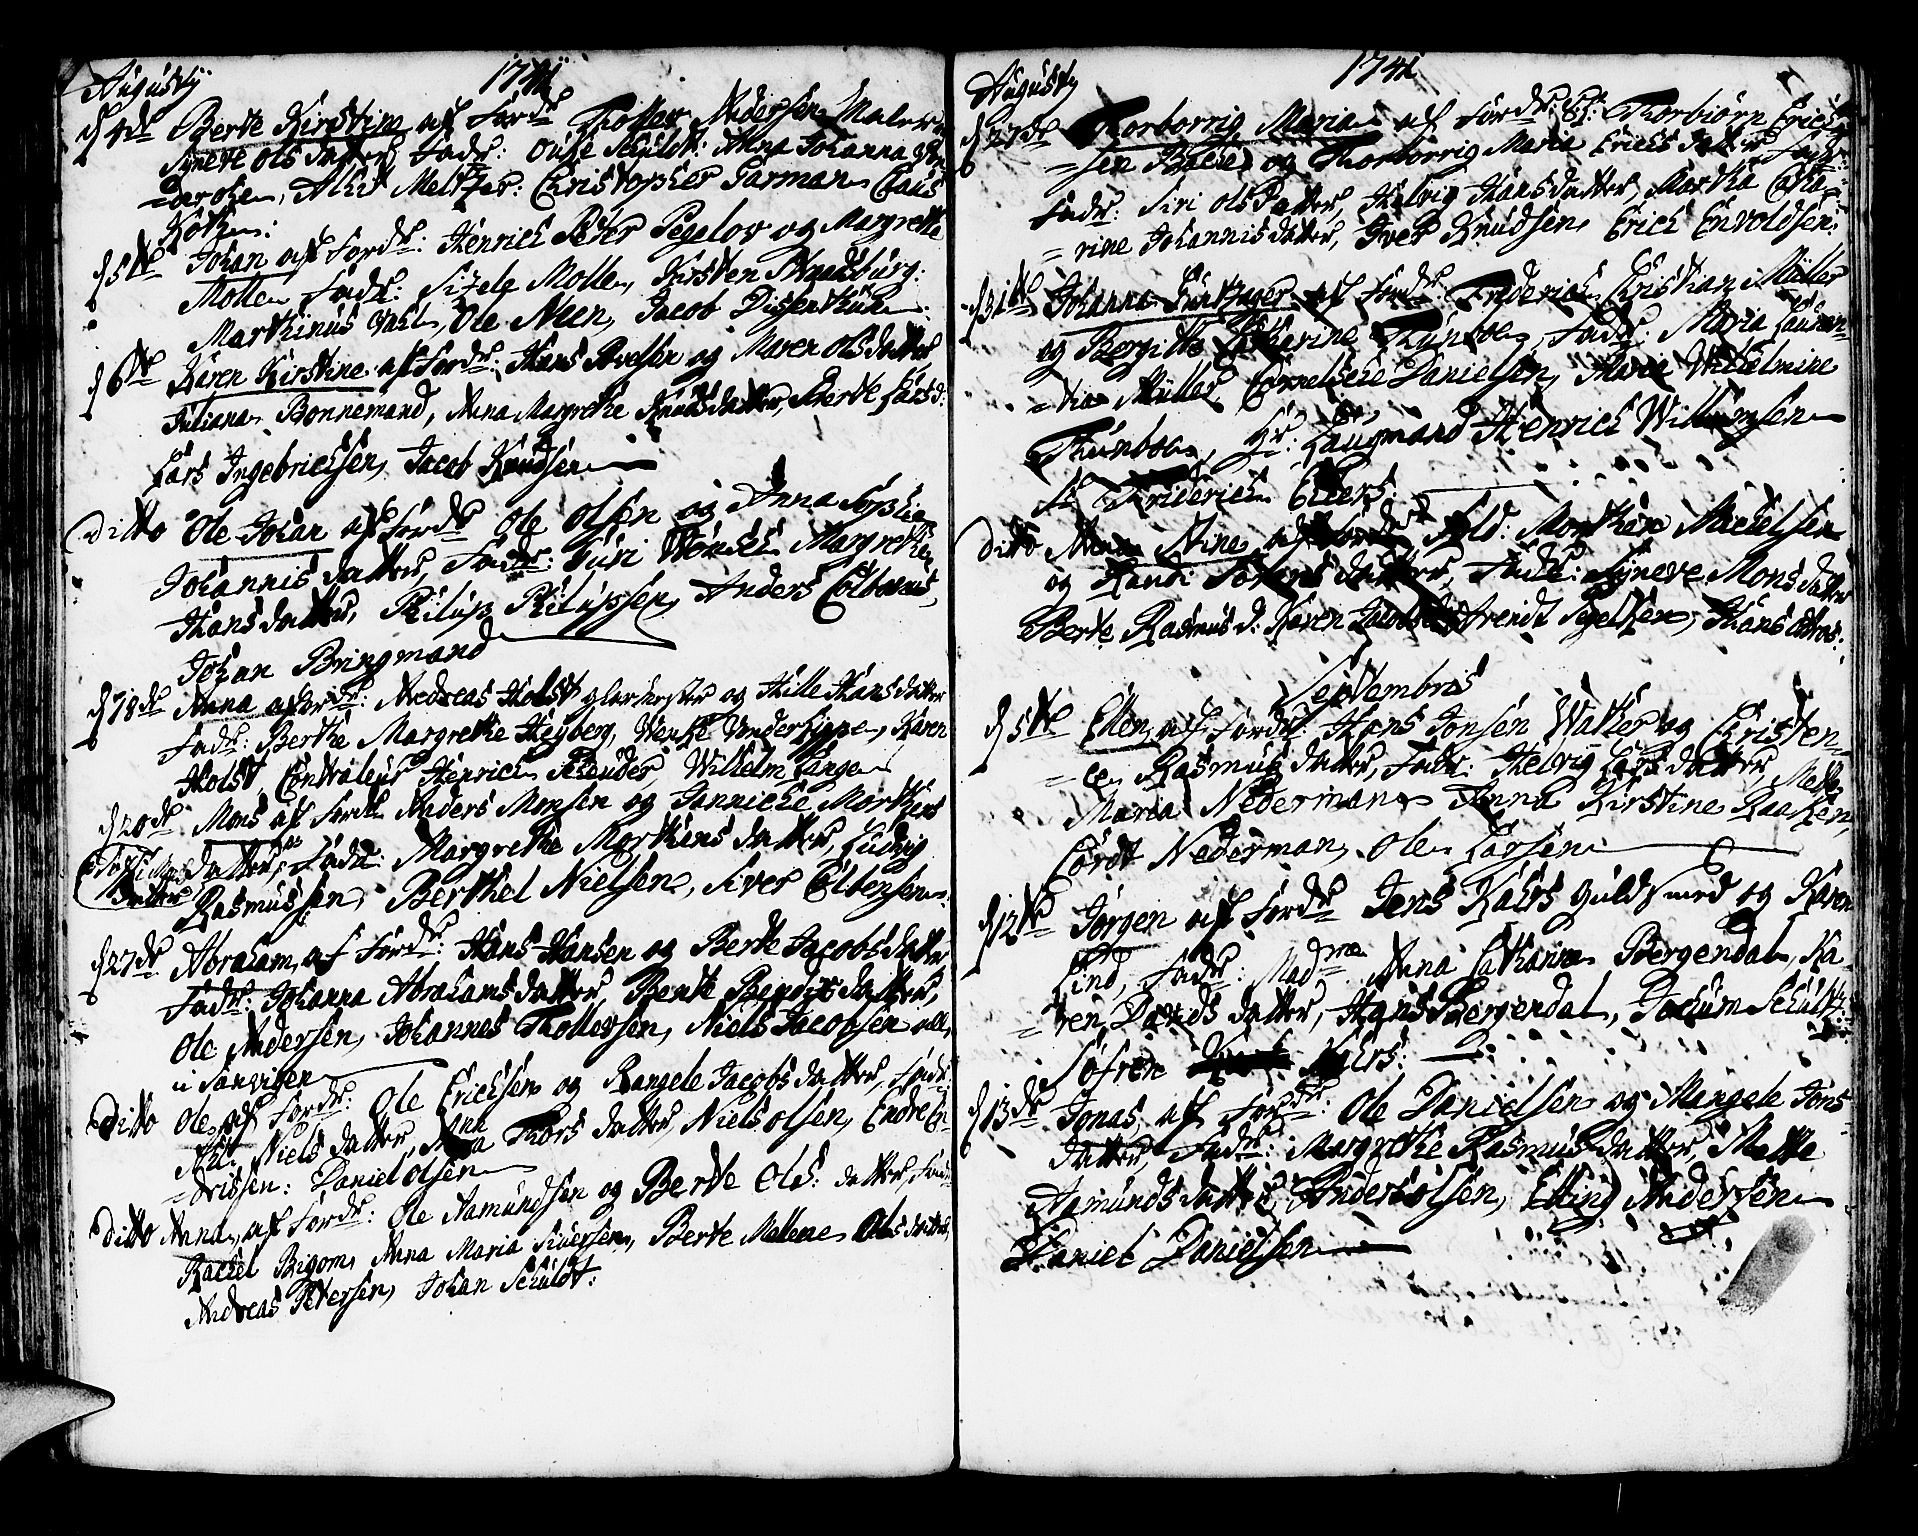 Augustÿ 1741
d 4de Berte Kirstine af Fordr. Tholler Andersen Maler
Syneve Ols datter, Fadr: Outhe Schuldt: Anna Johanna von
=deroken, Alhit Meltzer: Christopher Garman, Claus
d 5te Johan af Fordr: Henrich Peter Pegelov og Margrethe
Molle, Fadr: Sitzele Molle, Kirsten Stradsburg:
Marthinus Vahl, Ole Neen, Jacob
d 6te Karen Kirstine af Fordr: Hans Poulsen og Maren Ols datter
Juliana Bonnemand, Anna Margrethe Knuds datter, Berte Lars d:
Lars Ingebrichsen, Jacob Knudsen
ditto Ole Johan af Fordr Ole Olsen og Anna Sophia
Johannis datter, Fadr: Guri Wensel Margrethe
Hans datter, Philip Philipsen, Anders
Johan Bringmand
d 18de Anna af Fordr: Andreas Holst glarmester og Hille Hans datter
Fadr: Berthe Margrethe Heyberg, Wenke Vonderlippe, Karen
Holst, Contraleur Henrich Wilhelm Lange
d 20de Mons af Fordr Anders Monsen og Jannicke Morthens
datter, Fadr: Margrethe Morthens datter, Ludvig
datter Rasmussen, Berthel Nielsen, Siver
d 27de Abraham, af Fordr: Hans Hansen og Berte Jacobs datter
Fadr: Johanna Abrahams datter, Bente datter,
Ole Andersen, Johannes Thollersen, Niels Jacobsen alle
i Sandvigen
Ditto Ole, af Fordr: Ole Erichsen og Rangele Jacobs datter, Fadr:
Niels datter, Anna Thors datter, Niels Olsen, Endre En=
=drissen: Daniel Olsen
Ditto Anna, af Fordr: Ole Aamundsen og Berte Ols: datter, Fadr
Rachel Bigom, Anna Maria Siversen, Berte Malene Ols datter,
Andreas Petersen, Johan Schuldt:
Augustÿ 1741
d 27de Thorborrig Maria af Fordr: Thorbiørn Erich=
=sen og Thorborrig Maria Erichs datter
Fadr: Siri Ols Datter, Helvig Hans datter, Martha Catha
=rine Johannis datter, Iver Knudsen, Erich Envoldsen:
d 31te Johanna af Fordr: Friderich Christian Müller
og Bergitte Catharine Thunboe, Fadr: Maria Lauren=
=tia Müller, Cornelsche Danielsen, Maria Wilhelmine
Thunboe, Hr: Laugmand Henrich Willumsen
Sr Friderich Eilers:
ditto Anna Stine af Fordr Sold: Morthen Michelsen
og Randi Sørens datter, Fadr: Syneve Mons datter
Berte Rasmus d: Karen Jacobsd: Arendt Segelken, Hans
Septembris
d 5te Ellen, af Fordr: Hans Jonsen Walter og Christen=
=ce Rasmus datter, Fadr: Helvig Lars datter, Mette
Maria Nederman, Anna Kirstine Raaken,
Cordt Nederman, Ole Larsen
d 12te Jørgen af Fordr Jens Kahrs Guldsmed og Karen
Lind, Fadr: Madme Anna Catharine Bergendal, Ka=
=ren Davids datter, Hans Bergendal, Jochum Schultz
Søfren Kahrs:
d 13de Jonas, af Fordr: Ole Danielsen og Mangele Jons
datter, Fadr: Margrethe Rasmus datter, Mette
Aamunds datter, Anders Olsen, Elling Andersen
Daniel Danielsen